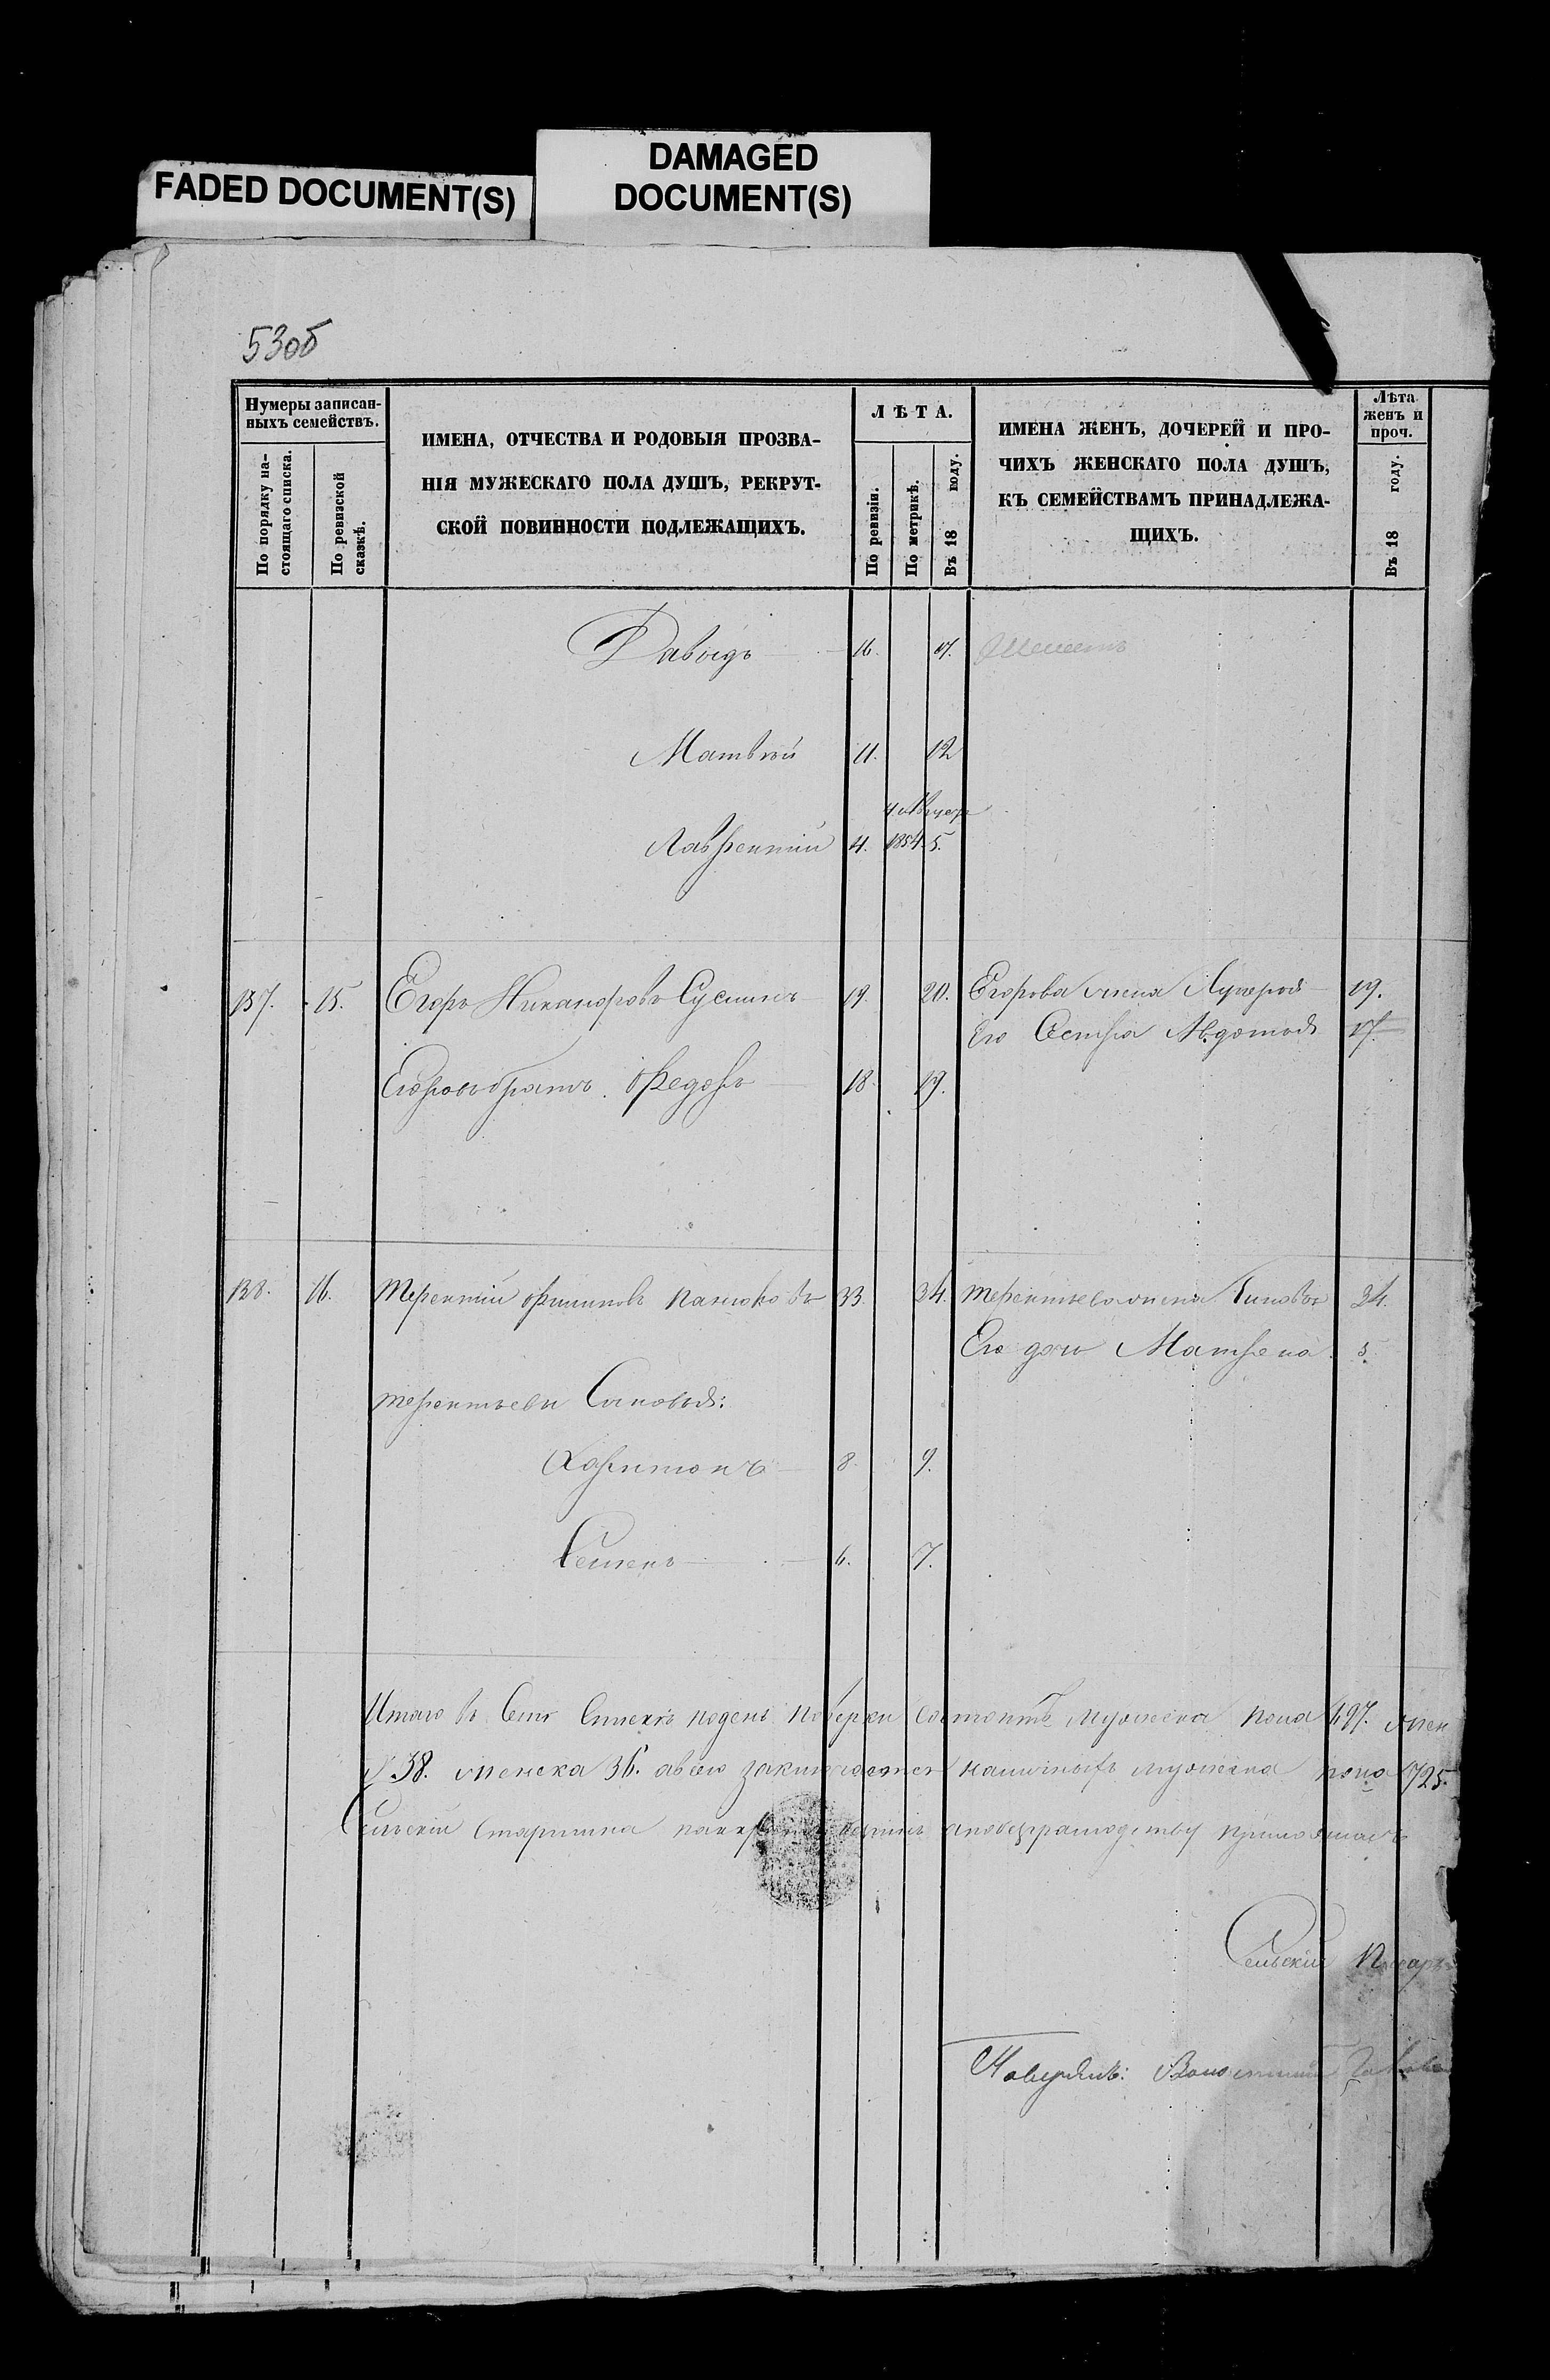 FADED DOCUMENT(S)
DAMAGED
DOCUMENT(S)
53об
Нумеры записан-
ныхъ семействъ.
По порядку на-
стоящаго списка.
По ревизской
сказкѣ.
ИМЕНА, ОТЧЕСТВА И РОДОВЫЯ ПРОЗВА-
НІЯ МУЖЕСКАГО ПОЛА ДУШЪ, РЕКРУТ-
СКОЙ ПОВИННОСТИ ПОДЛЕЖАЩИХЪ.
ЛѢТА.
По ревизіи.
По метрикѣ.
Въ 18 году.
ИМЕНА ЖЕНЪ, ДОЧЕРЕЙ И ПРО-
ЧИХЪ ЖЕНСКАГО ПОЛА ДУШЪ,
КЪ СЕМЕЙСТВАМЪ ПРИНАДЛЕЖА-
ЩИХЪ.
Лѣта
женъ и
проч.
Въ 18 году.
Давыдъ 16. 17.
Матвѣй 11. 12
Лаврентій 4. 1854 5.
137. 15. Егоръ Никаноровъ 19. 20. Егорова жена 19.
Его Сестра Авдотья 17.
Егоровъ братъ Федоръ 18. 19.
138. 16. Терентій Филиповъ Панюковъ 33. 34. Терентьева жена 34.
Его дочь Матрена 5.
Терентьевы Сыновья:
Харитонъ 8. 9.
Семенъ 6. 7.
Итого въ Семъ Спискѣ по день Поверки Состоитъ мужеска пола 697. жен
38. женска 36. а всего заключается наличныхъ мужеска пола 725.
Сельскій Старшина
Сельскій Писарь
Поверялъ: Волостный Голова